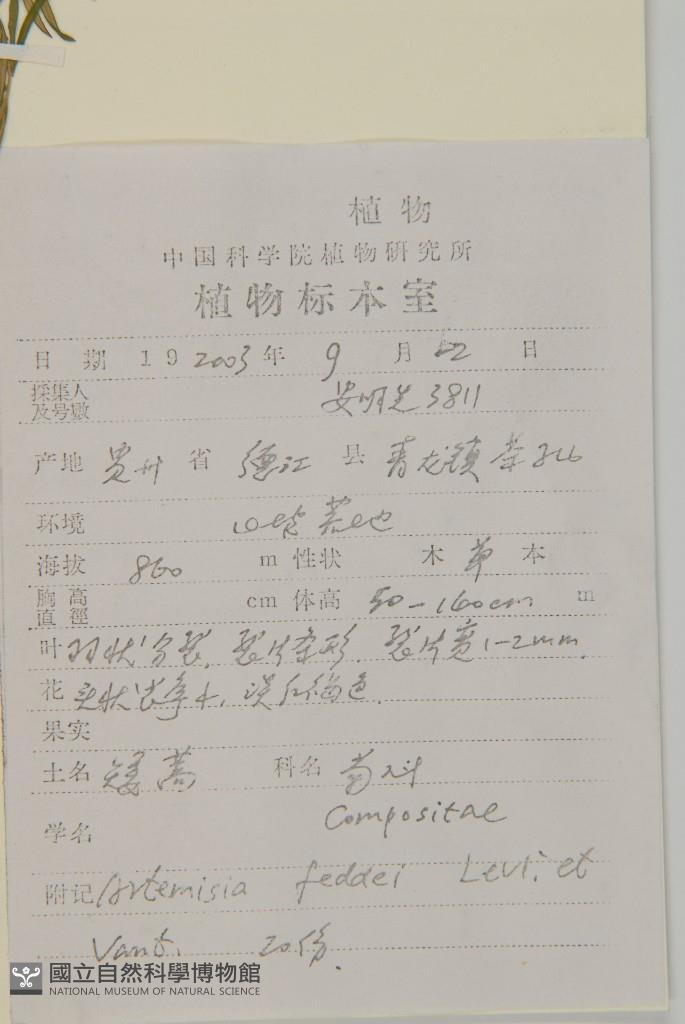 植物
中国科学院植物研究所
植物标本室
日 期 19 2003 年 9 月 22 日
採集人及号數 安明先 3811
产地 贵州 省 德江 县 青龙镇
环境 山坡荒地
海拔 860 m 性状 木 草 本
胸高直徑 cm 体高 50-160cm m
叶 羽状分裂, 裂片条形. 裂片宽1-2mm.
花 头状花序小, 淡红褐色.
果实
土名 矮蒿 科名 菊科
Compositae
学名
附记 Artemisia feddei Levl. et
Vant. 20份.
國立自然科學博物館
NATIONAL MUSEUM OF NATURAL SCIENCE